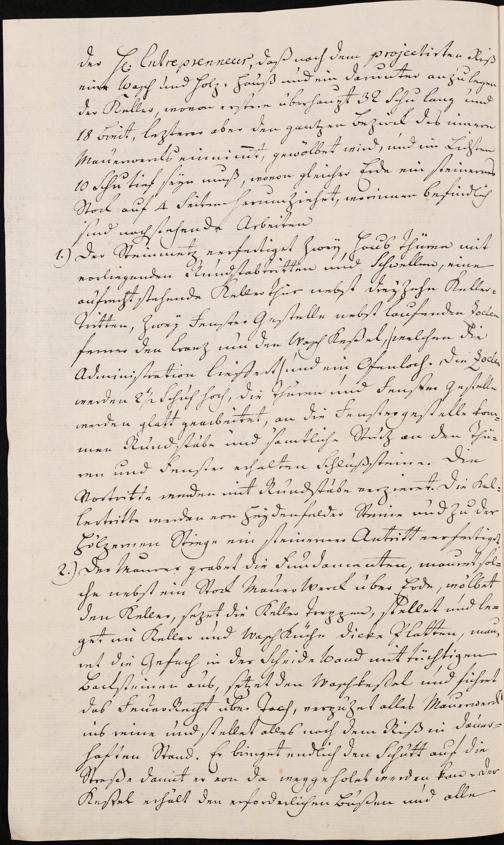 der H. Entreprenneur, daß nach dem projectirten Riß
eine Wasch und Holz-Hauß und ein darunter anzulegen
der Keller, wovon erstere überhaupt 32 Schu lang und
18 breit, letzterer aber den gantzen Bezirck des innern
Mauerwercks einnimt, gewölbet wird, und im Lichten
10 Schu tief seyn muß, wovon gleicher Erde ein steinerner
Stock auf 4 Seiten herumziehet, worinnen befindlich
sind nachstehende Arbeiten
1.) Der Steinmetz verfertiget Zwey Haus Thüren mit
vorliegenden Rundstabtritten und Schwellen, eine
aufrecht stehende Keller Thür nebst dreyzehn Keller-
Tritten, Zwey Fenster Gestelle nebst laufenden Zocken
ferner den Cranz um den Wasch Keßel, welchen die
Administration liefert, und ein Ofenloch. Die Zocken
werden 2½ Schuh hoch, die Thüren und Fenster Gestelle
werden glatt gearbeitet, an die Fenstergestelle kom-
men Rundstäbe und sämtliche Stürz an den Thü-
ren und Fenster erhalten Schlußsteine. Die
Vortritte werden mit Rundstäbe verziert. Die Kel-
lertritte werden von Heydenfelder Steine und zu der
Hölzernen Stiege ein steinerner Antritt verfertiget.
2.) Der Maurer grabet die Fundamenten, mauret sol-
che nebst ein Stock Mauer Werck über Erde, wölbet
den Keller, setzet die Keller Treppen, stellet und le-
get im Keller und Wasch Küche dicke Platten, mau-
ret die Gefach in der Scheide Wand mit tüchtigen
Backsteinen aus, setzet den Waschkeßel und führet
das Feuer Recht über Dach, verputzet alles Mauerwerck
ins reine und stellet alles nach dem Riß in dauer-
haften Stand. Er bringet endlich den Schutt auf die
Straße damit er von da weggeholet werden kan. der
Keßel erhält den erforderlichen und alle